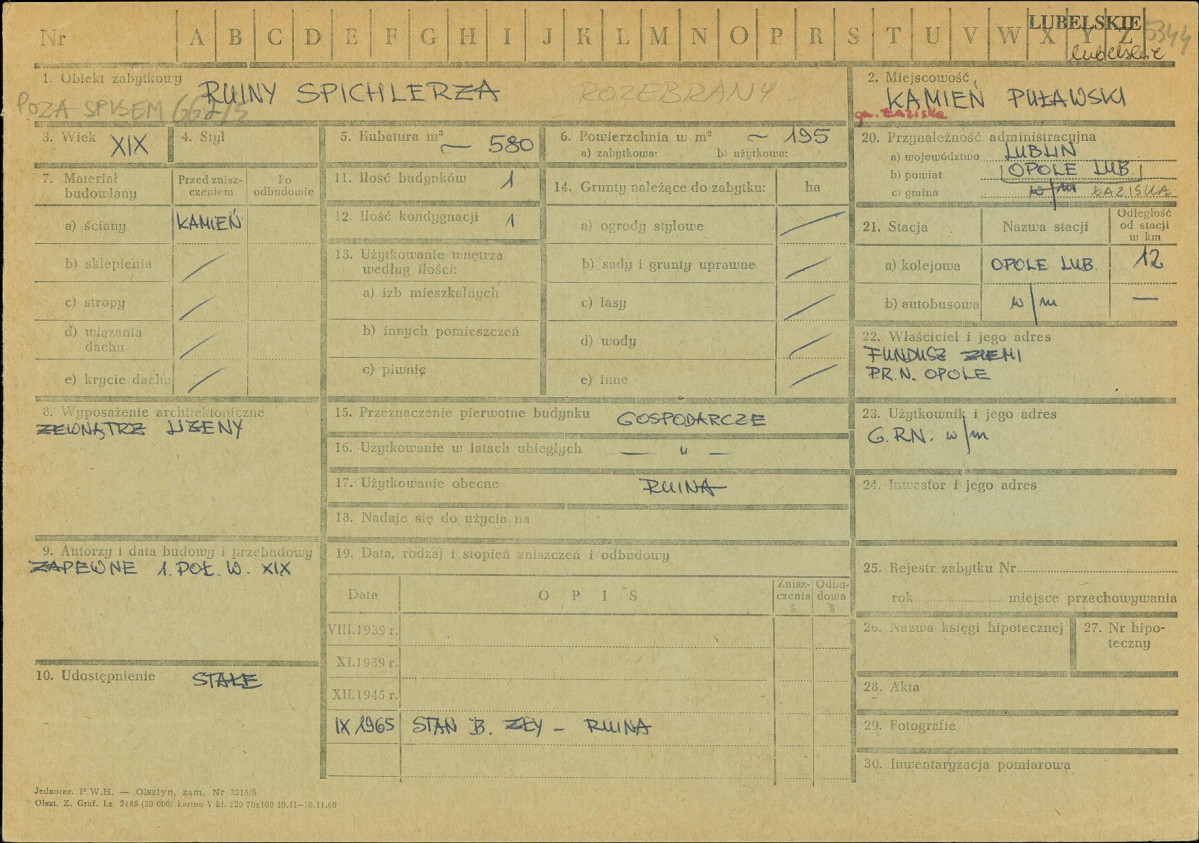 Nr A B C D E F G H I J K L M N O P R S T U V W X Y Z
LUBELSKIE
lubelskie
5344
1. Obiekt zabytkowy RUINY SPICHLERZA
ROZEBRANY
POZA SPISEM
2. Miejscowość
KAMIEŃ PUŁAWSKI
gm. Łaziska
3. Wiek XIX
4. Styl
5. Kubatura m³ ~ 580
6. Powierzchnia w m² ~ 195
a) zabytkowa: b) użytkowa:
7. Materiał budowlany
Przed zniszczeniem
Po odbudowie
a) ściany KAMIEŃ
b) sklepienia
c) stropy
d) wiązania dachu
e) krycie dachu
8. Wyposażenie architektoniczne
ZEWNĄTRZ LIZENY
9. Autorzy i data budowy i przebudowy
ZAPEWNE 1. POŁ. W. XIX
10. Udostępnienie STAŁE
11. Ilość budynków 1
12. Ilość kondygnacji 1
13. Użytkowanie wnętrza
według ilości:
a) izb mieszkalnych
b) innych pomieszczeń
c) piwnic
14. Grunty należące do zabytku: ha
a) ogrody stylowe
b) sady i grunty uprawne
c) lasy
d) wody
e) inne
15. Przeznaczenie pierwotne budynku GOSPODARCZE
16. Użytkowanie w latach ubiegłych — " —
17. Użytkowanie obecne RUINA
18. Nadaje się do użycia na
19. Data, rodzaj i stopień zniszczeń i odbudowy
Data OPIS Zniszczenia % Odbudowa %
VIII.1939 r.
XI.1939 r.
XII.1945 r.
IX 1965 STAN B. ZŁY — RUINA
20. Przynależność administracyjna
a) województwo LUBLIN
b) powiat OPOLE LUB.
c) gmina w/m ŁAZISKA
21. Stacja Nazwa stacji Odległość od stacji w km
a) kolejowa OPOLE LUB. 12
b) autobusowa w/m —
22. Właściciel i jego adres
FUNDUSZ ZIEMI
P.R.N. OPOLE
23. Użytkownik i jego adres
G.RN. w/m
24. Inwestor i jego adres
25. Rejestr zabytku Nr
rok miejsce przechowywania
26. Nazwa księgi hipotecznej
27. Nr hipoteczny
28. Akta
29. Fotografie
30. Inwentaryzacja pomiarowa
Jednoter. P.W.H. — Olsztyn, zam. Nr 3215/S